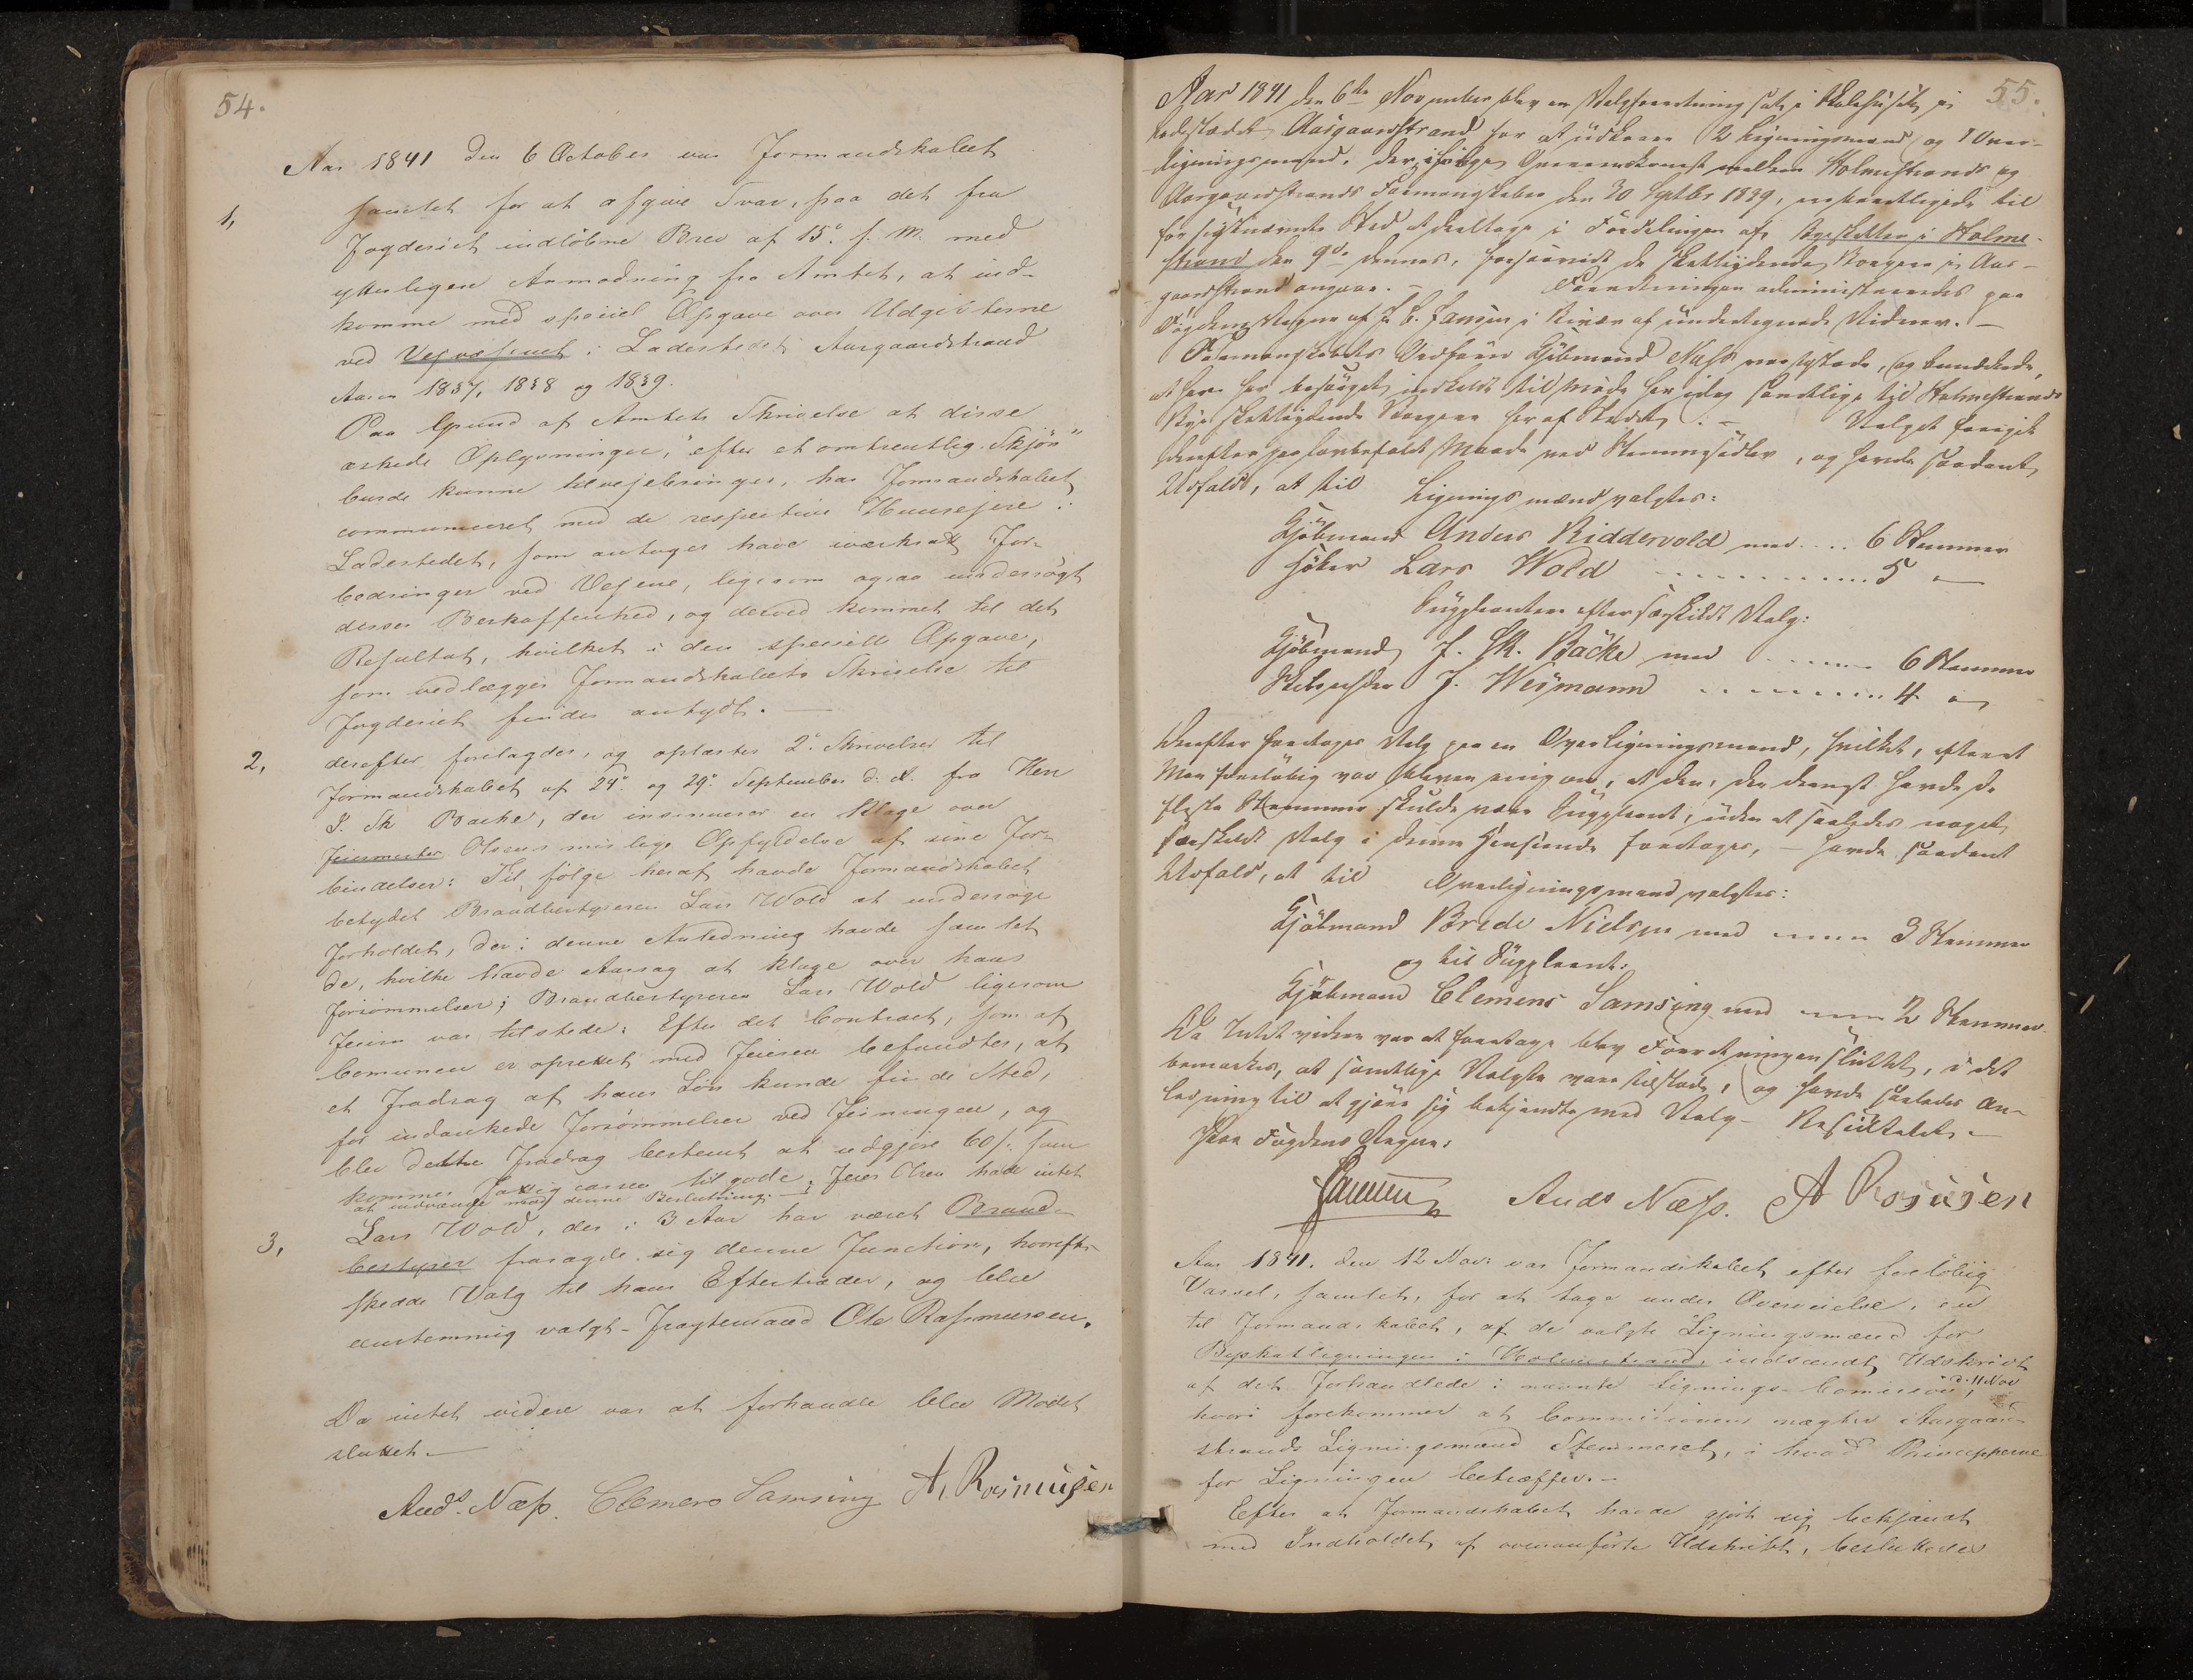 54.
Aar 1841 den 6 October var Formandskabet
1, samlet for at afgive Svar, paa det fra
Fogderiet indløbne Brev af 15de f. M. med
ytterligere Anmodning fra Amtet, at ind-
komme med speciel Opgave over Udgifterne
ved Vejvæsenet i Ladestedet Aasgaardstrand
Aaren 1837, 1838 og 1839.
Paa Grund af Amtets Skrivelse at disse
æskede Oplysninger, "efter et omtrentlig Skjøn"
burde kunne tilvejebringes, har Formandskabet
communiceret med de respective Huusejere i
Ladestedet, som antages have iværksatt For-
bedringer ved Vejene, ligesom ogsaa undersøgt
disses Beskaffenhed, og derved kommet til det
Resultat, hvilket i den specielle Opgave,
som vedlægges Formandskabets Skrivelse til
Fogderiet findes antydt. —
2, derefter forelagdes, og oplæstes 2de Skrivelser til
Formandskabet af 24de og 29de September d. A. fra Herr
J. Sk Backe, der insinuerer en Klage over
Feiermester Olsens mislige Opfyldelse af sine For-
bindelser: Til følge heraf havde Formandskabet
betydet Brandbestyreren Lars Wold at undersøge
Forholdet, der i denne Anledning havde samlet
de, hvilke havde Aarsag at klage over hans
Forsømmelser; Brandbestyreren Lars Wold ligesom
Feieren var tilstede: Efter det Contract, som af
Comunen er oprettet med Feieren befandtes, at
et Fradrag af hans Løn kunde finde Sted,
for indankede Forsømmelser ved Feiningen, og
blev dette Fradrag bestemt at udgjøre 60 s. som
kommer Fattigcassen til gode. Feier Olsen havde intet
at indvende mod denne Beslutning. —
3, Lars Wold, der i 3 Aar har været Brand-
bestyrer frasagde sig denne Function, hvorefter
skedde Valg til hans Eftertræder, og blev
eenstemmig valgt - Fragtemand Ole Rasmussen.
Da intet videre var at forhandle blev Mødet
sluttet. —
Ands. Næss. Clemens Samsing A. Rasmusen
55.
Aar 1841 den 6te November blev en Valgforretning sat i Skolehuset paa
Ladestædet Aasgaardstrand for at udkaare 2 Ligningsmænd og 1 Over-
ligningsmand, der, ifølge Overeenskomst mellem Holmestrands og
Aasgaardstrands Formandskaber den 30 Septbr 1839, ere berettigede til
for sidstnævnte Sted at deeltage i Fordelingen af Byeskatten i Holme-
strand den 9de dennes, forsaavidt de skattydende Borgere i Aas-
gaardstrand angaar. — Forretningen administreredes paa
Fogdens Vegne af J. C. Jansen i Nærvær af undertegnede Vidner. —
Formandskabets Ordfører Kjøbmand Næss var tilstede, og bemærkede,
at han har besørget indkaldt til Møde her idag samtlige til Holmestrands
Bye skattydende Borgere her af Stedet. — Valget foregik
derefter paa lovbefalet Maade ved Stemmesedler, og havde saadant
Udfald, at til Ligningsmænd valgtes:
Kjøbmand Anders Riddervold med .... 6 Stemmer
Høker Lars Wold ............ 5 —
Suppleanter efter særskildt Valg:
Kjøbmand J. Sk. Backe med ...... 6 Stemmer
J. Weismann ......... 4 —
Derefter foretages Valg paa en Overligningsmand, hvilket, efterat
Man foreløbig var bleven enig om, at den, der dernæst havde de
fleste Stemmer skulde være Suppleant, uden at saaledes noget
særskildt Valg i denne Henseende foretages, — havde saadant
Udfald, at til Overligningsmand valgtes:
Kjøbmand Brede Nielsen med ...... 3 Stemmer
og til Suppleant:
Kjøbmand Clemens Samsing med ...... 2 Stemmer
Da Intet videre var at foretage blev Forretningen sluttet, idet
bemærkes, at samtlige Valgte vare tilstede, og havde saaledes An-
ledning til at gjøre sig bekjendte med Valg-Resultatet. —
Paa Fogdens Vegne:
Jansen Ands Næss. A Rasmusen
Aar 1841. den 12 Nov: var Formandskabet efter foreløbig
Varsel, samlet, for at tage under Overveielse, en
til Formandskabet, af de valgte Ligningsmænd for
Byskatligningen i Holmestrand, indsændt Udskrivt
af det Forhandlede i nævnte Lignings-Comission, d: 11 Nov
hvori forekommer at Commissionen nægter Aasgaard-
strands Ligningsmænd Stemmeret, i hvad Principperne
for Ligningen betræffer. —
Efter at Formandskabet havde gjort sig bekjændt
med Indholdet af ovenanførte Udskrift, besluttedes